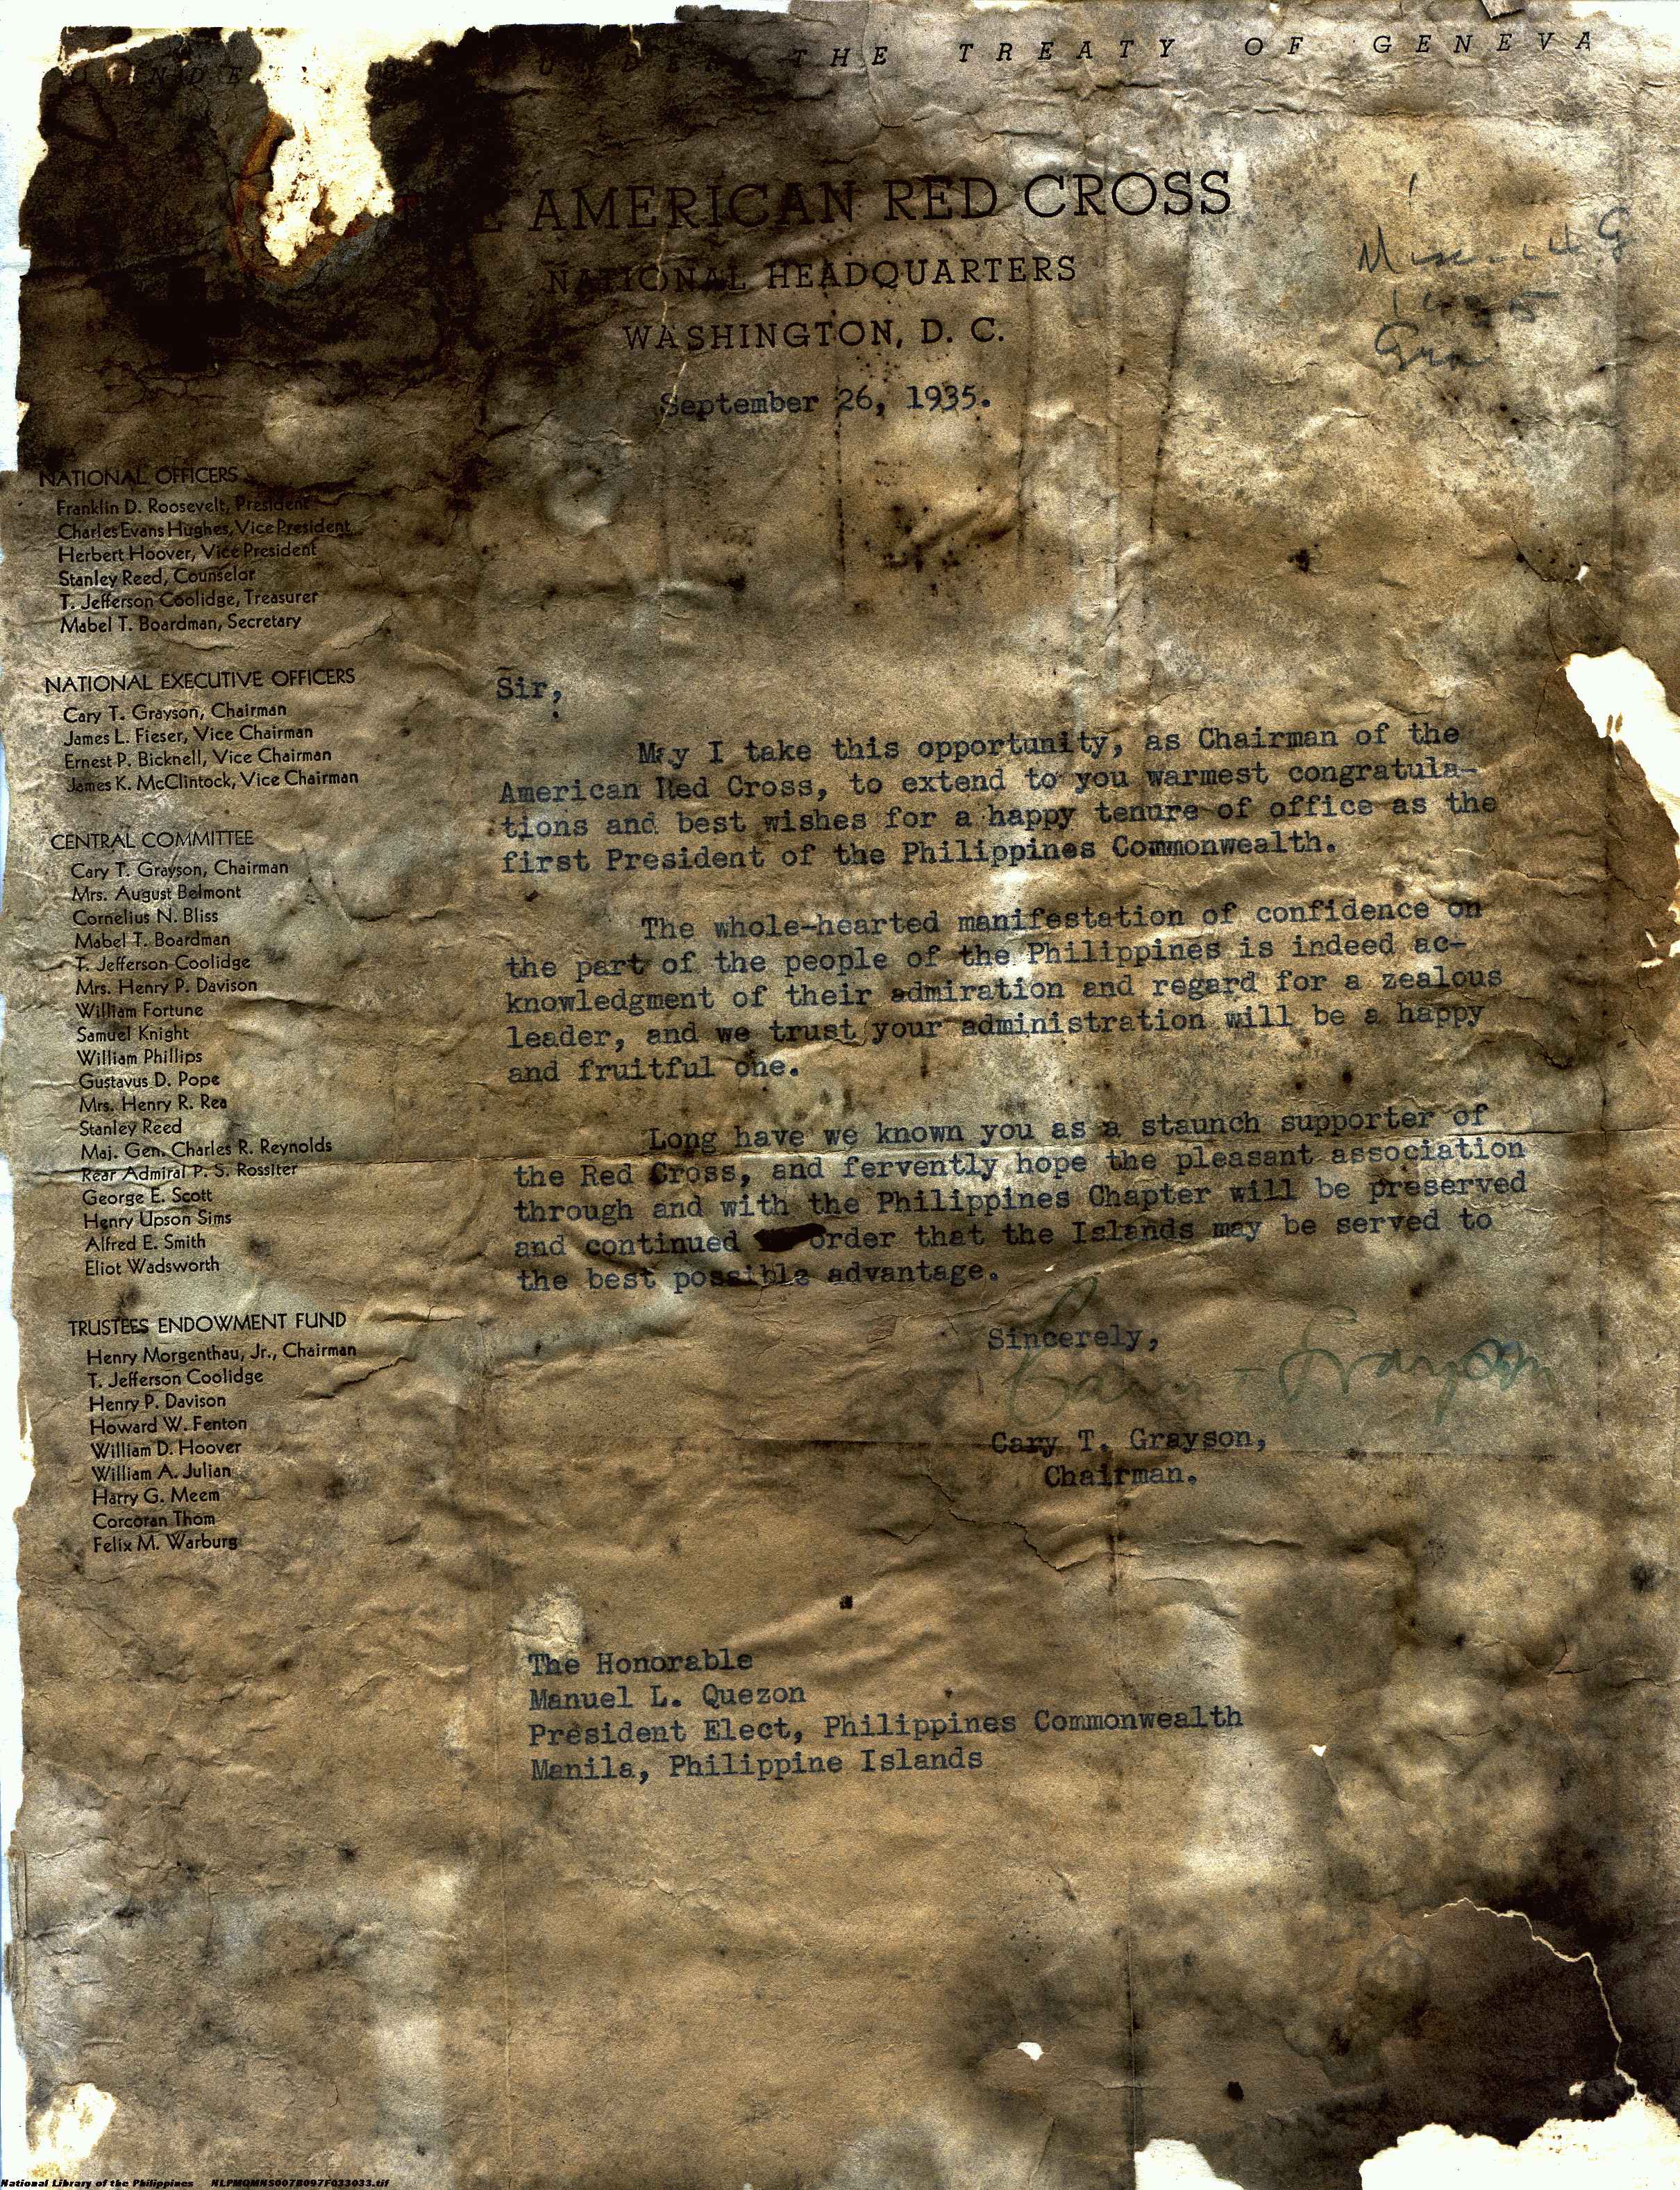 UNDER THE TREATY OF GENEVA
AMERICAN RED CROSS
NATIONAL HEADQUARTERS
WASHINGTON, D. C.
September 26, 1935.
NATIONAL OFFICERS
Franklin D. Roosevelt, President
Charles Evans Hughes, Vice President
Herbert Hoover, Vice President
Stanley Reed, Counselor
T. Jefferson Coolidge, Treasurer
Mabel T. Boardman, Secretary
NATIONAL EXECUTIVE OFFICERS
Cary T. Grayson, Chairman
James L. Fieser, Vice Chairman
Ernest P. Bicknell, Vice Chairman
James K. McClintock, Vice Chairman
CENTRAL COMMITTEE
Cary T. Grayson, Chairman
Mrs. August Belmont
Cornelius N. Bliss
Mabel T. Boardman
T. Jefferson Coolidge
Mrs. Henry P. Davison
William Fortune
Samuel Knight
William Phillips
Gustavus D. Pope
Mrs. Henry R. Rea
Stanley Reed
Maj. Gen. Charles R. Reynolds
Rear Admiral P. S. Rossiter
George E. Scott
Henry Upson Sims
Alfred E. Smith
Eliot Wadsworth
TRUSTEES ENDOWMENT FUND
Henry Morgenthau, Jr., Chairman
T. Jefferson Coolidge
Henry P. Davison
Howard W. Fenton
William D. Hoover
William A. Julian
Harry G. Meem
Corcoran Thom
Felix M. Warburg
Sir,
May I take this opportunity, as Chairman of the
American Red Cross, to extend to you warmest congratula-
tions and best wishes for a happy tenure of office as the
first President of the Philippines Commonwealth.
The whole-hearted manifestation of confidence on
the part of the people of the Philippines is indeed ac-
knowledgment of their admiration and regard for a zealous
leader, and we trust your administration will be a happy
and fruitful one.
Long have we known you as a staunch supporter of
the Red Cross, and fervently hope the pleasant association
through and with the Philippines Chapter will be preserved
and continued order that the Islands may be served to
the best possible advantage.
Sincerely,
Cary T. Grayson
Cary T. Grayson,
Chairman.
The Honorable
Manuel L. Quezon
President Elect, Philippines Commonwealth
Manila, Philippine Islands
National Library of the Philippines NLPMQMNS007B097F033033.tif